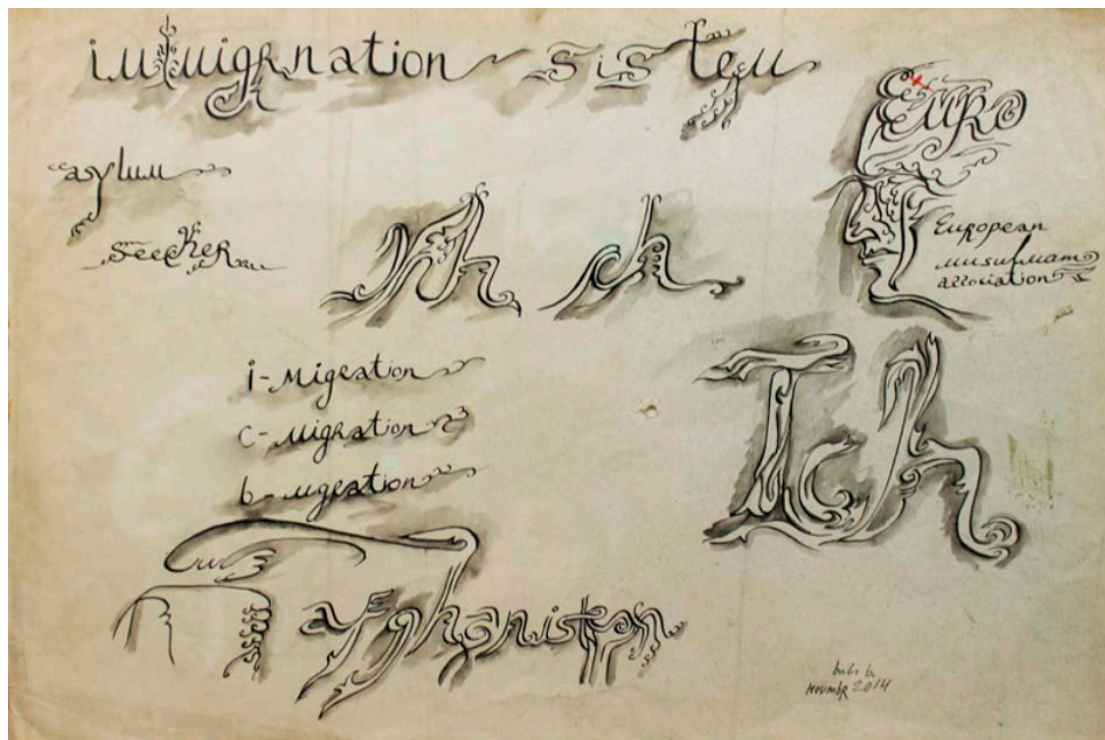 immigrnation sistem
EURO
asylum
seecker
ch
European
musulmam
association
i-Migration
c-migration
b-migeation
Ich
Afghanistan
novmbr 2014